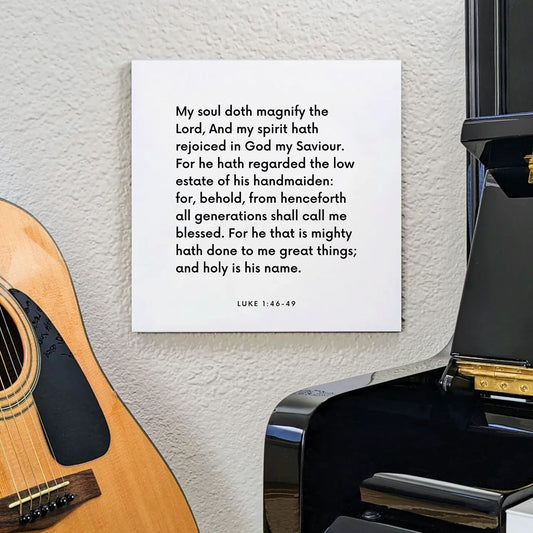 My soul doth magnify the
Lord, And my spirit hath
rejoiced in God my Saviour.
For he hath regarded the low
estate of his handmaiden:
for, behold, from henceforth
all generations shall call me
blessed. For he that is mighty
hath done to me great things;
and holy is his name.
LUKE 1:46-49